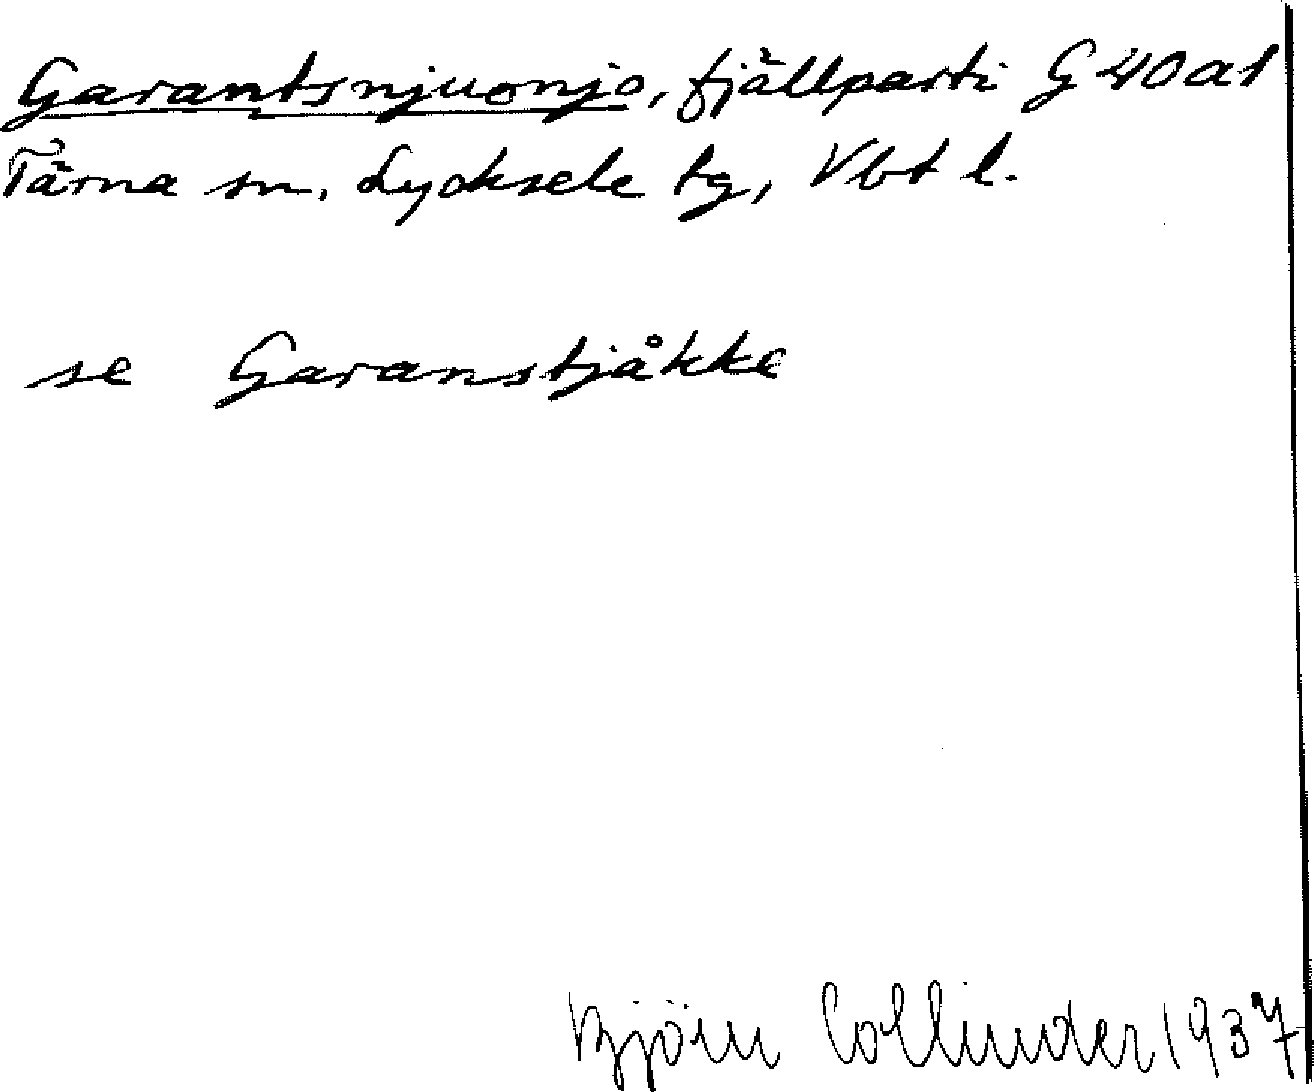 Garantsnjuonjo, fjällparti G 40 a1
Tärna sn. Lycksele lg, Vbt l.
se Garanstjåkke
Björn Collinder 1937